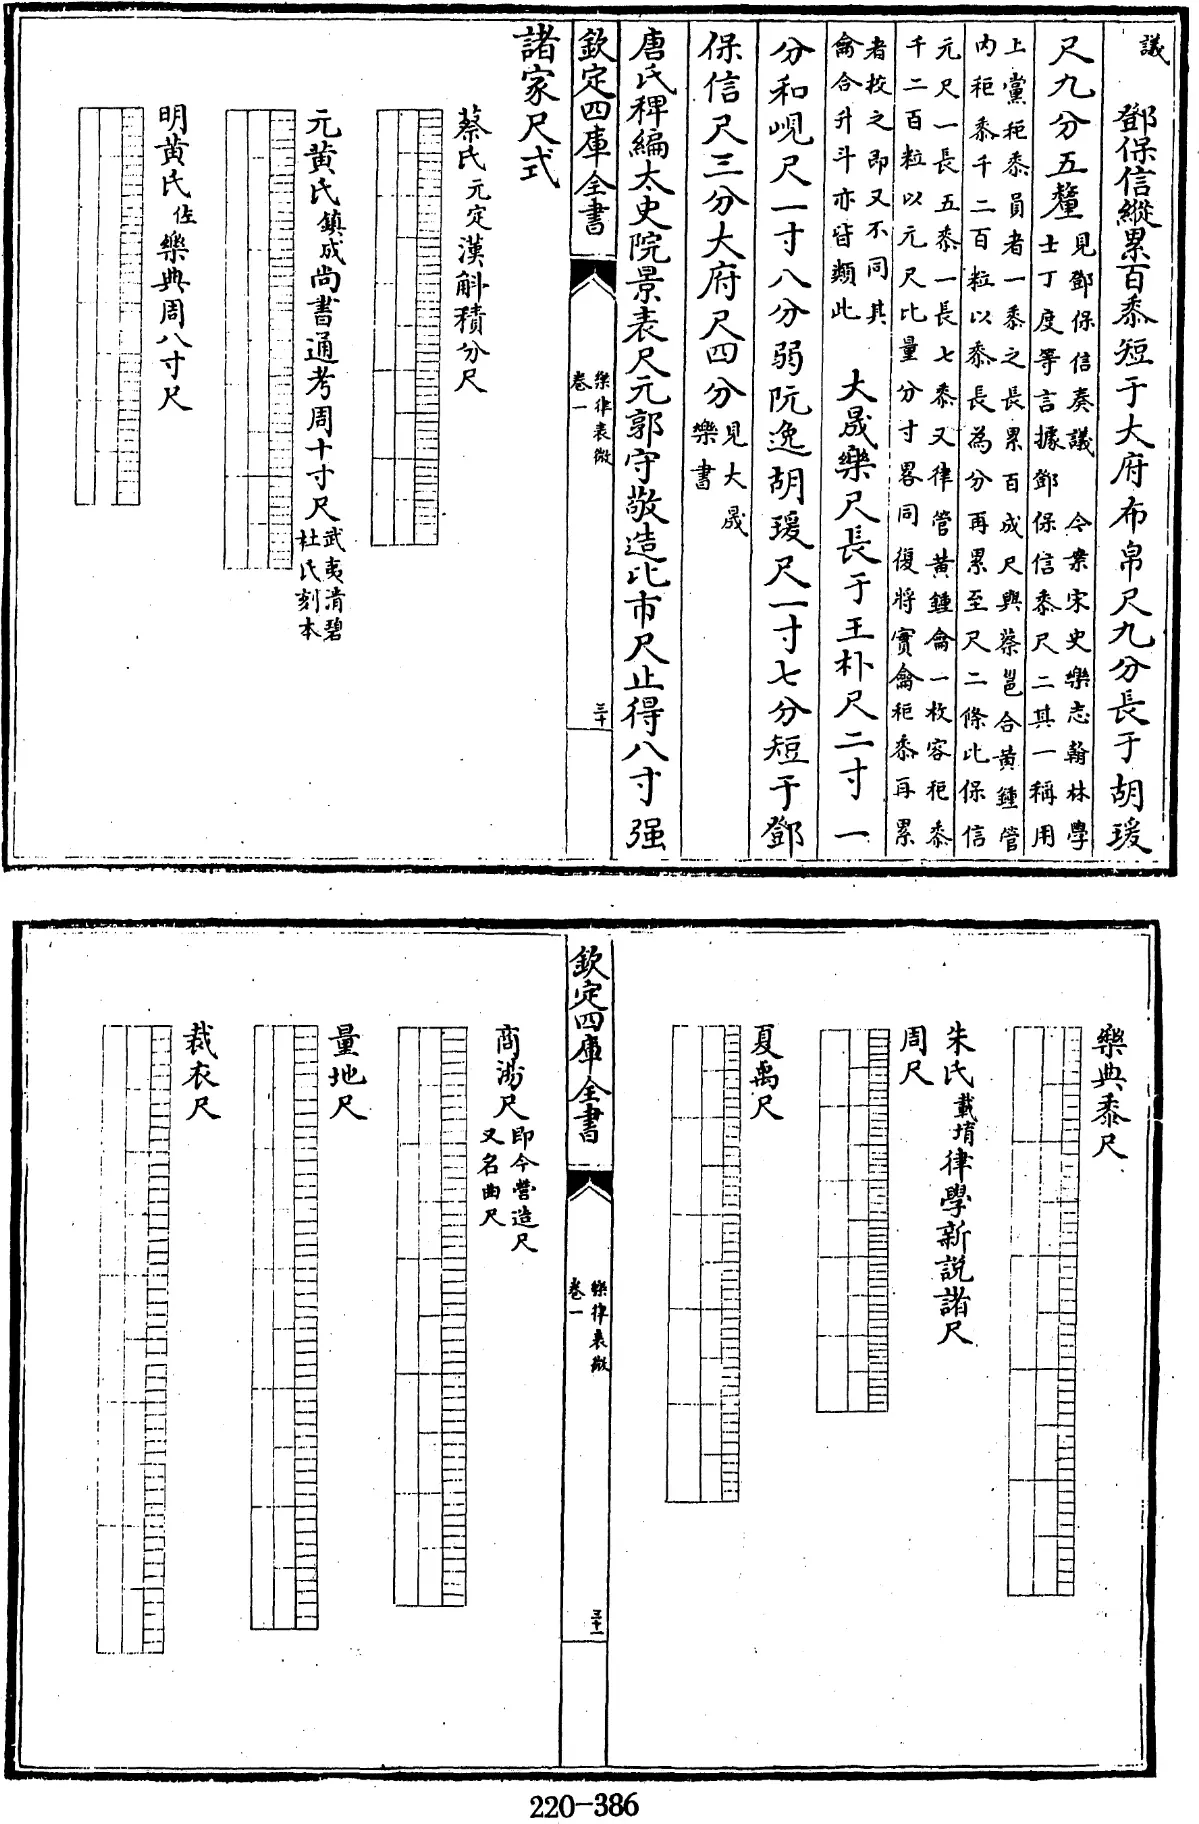 議
鄧保信縱累百黍短于大府布帛尺九分長于胡瑗
尺九分五釐
見鄧保信奏議 今案宋史樂志翰林學
士丁度等言據鄧保信黍尺二其一稱用
上黨秬黍員者一黍之長累百成尺與蔡邕合黄鍾管
内秬黍千二百粒以黍長為分再累至尺二條比保信
元尺一長五黍一長七黍又律管黄鍾龠一枚容秬黍
千二百粒以元尺比量分寸畧同復將實龠秬黍再累
者校之即又不同其
龠合升斗亦皆類此
大晟樂尺長于王朴尺二寸一
分和峴尺一寸八分弱阮逸胡瑗尺一寸七分短于鄧
保信尺三分大府尺四分
見大晟
樂書
唐氏稗編太史院景表尺元郭守敬造比市尺止得八寸强
欽定四庫全書
樂律表微
卷一
三十
諸家尺式
蔡氏元定漢斛積分尺
元黄氏鎮成尚書通考周十寸尺
武夷清碧
杜氏刻本
明黄氏佐樂典周八寸尺
樂典黍尺
朱氏載堉律學新説諸尺
周尺
夏禹尺
欽定四庫全書
樂律表微
卷一
三十一
商湯尺
即今營造尺
又名曲尺
量地尺
裁衣尺
220-386